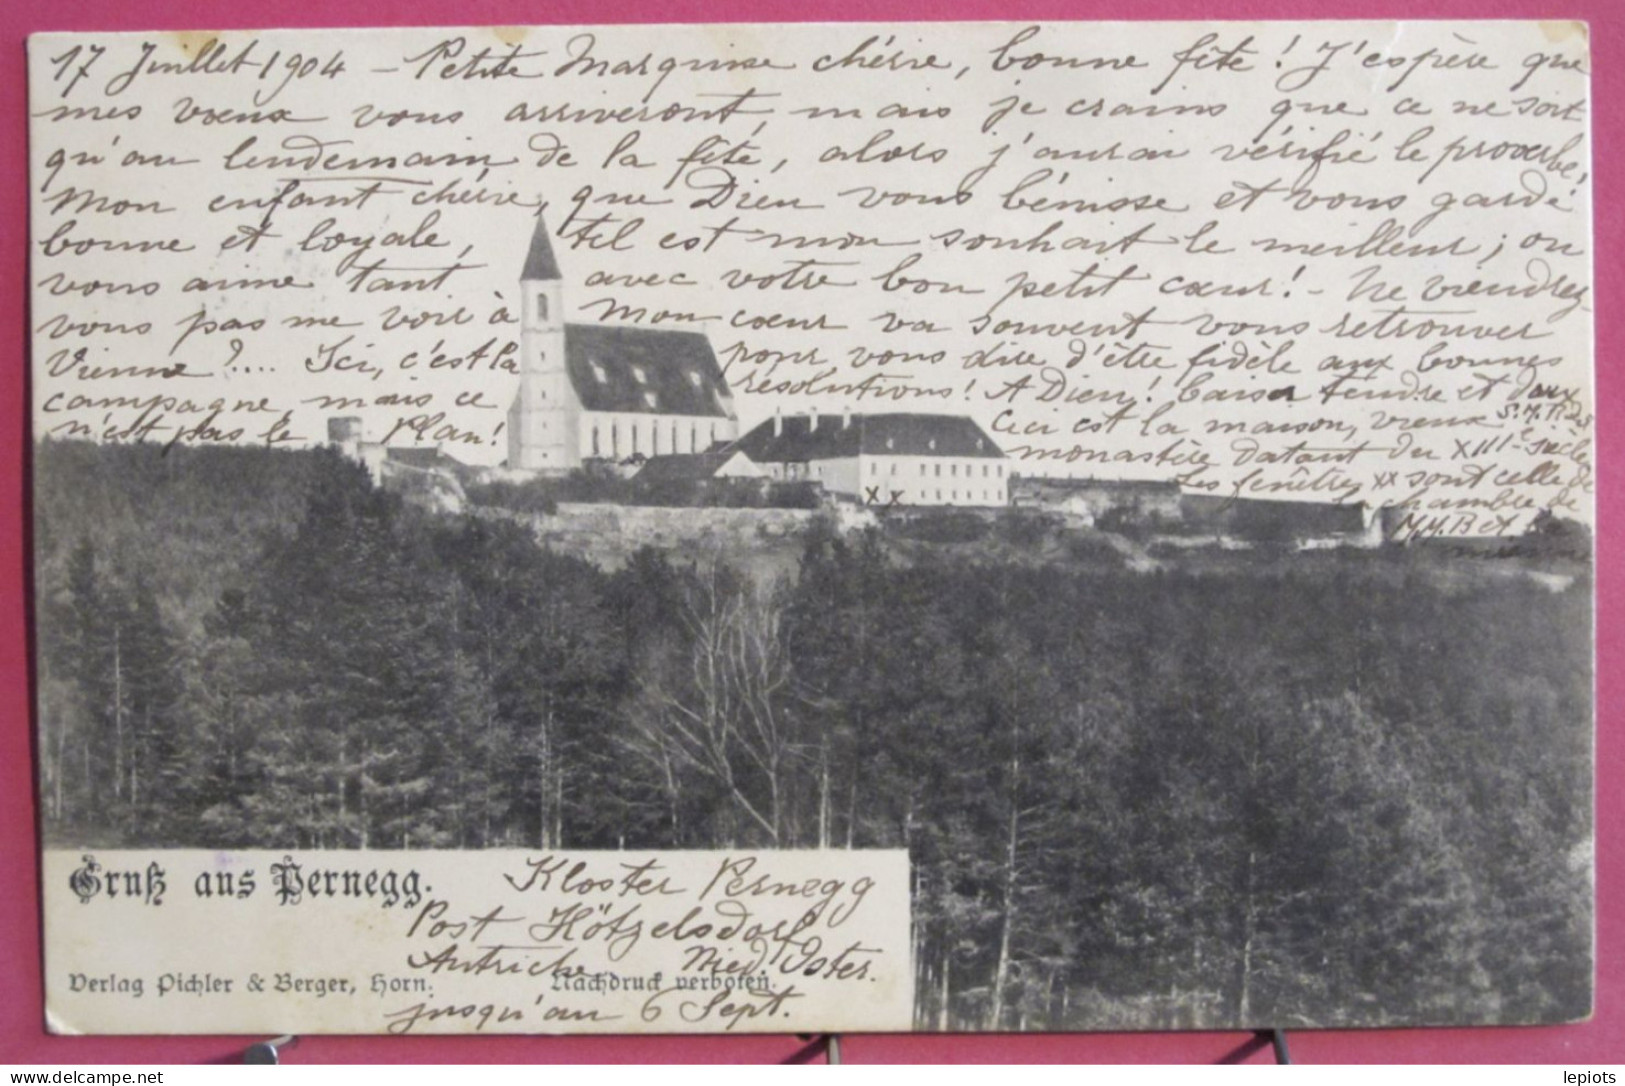 17 Juillet 1904 – Petite Marquise chérie, bonne fête! J'espère que
mes vœux vous arriveront, mais je crains que ce ne soit
qu'au lendemain de la fête, alors j'aurai vérifié le proverbe!
Mon enfant chérie, que Dieu vous bénisse et vous garde
bonne et loyale, tel est mon souhait le meilleur; on
vous aime tant avec votre bon petit cœur! – Ne viendrez-
vous pas me voir à
Vienne?.... Ici, c'est la
campagne, mais ce
n'est pas le Plan!
Mon cœur va souvent vous retrouver
pour vous dire d'être fidèle aux bonnes
résolutions! A Dieu! baiser tendre et doux
Ceci est la maison, vieux
monastère datant du XIIIe siècle
Les fenêtres xx sont celle de
la chambre de
M.M.B et la
x x
Gruß aus Pernegg.
Kloster Pernegg
Post Hötzelsdorf
Autriche Nied. Öster.
jusqu'au 6 Sept.
Verlag Pichler & Berger, Horn. Nachdruck verboten.
lepiots